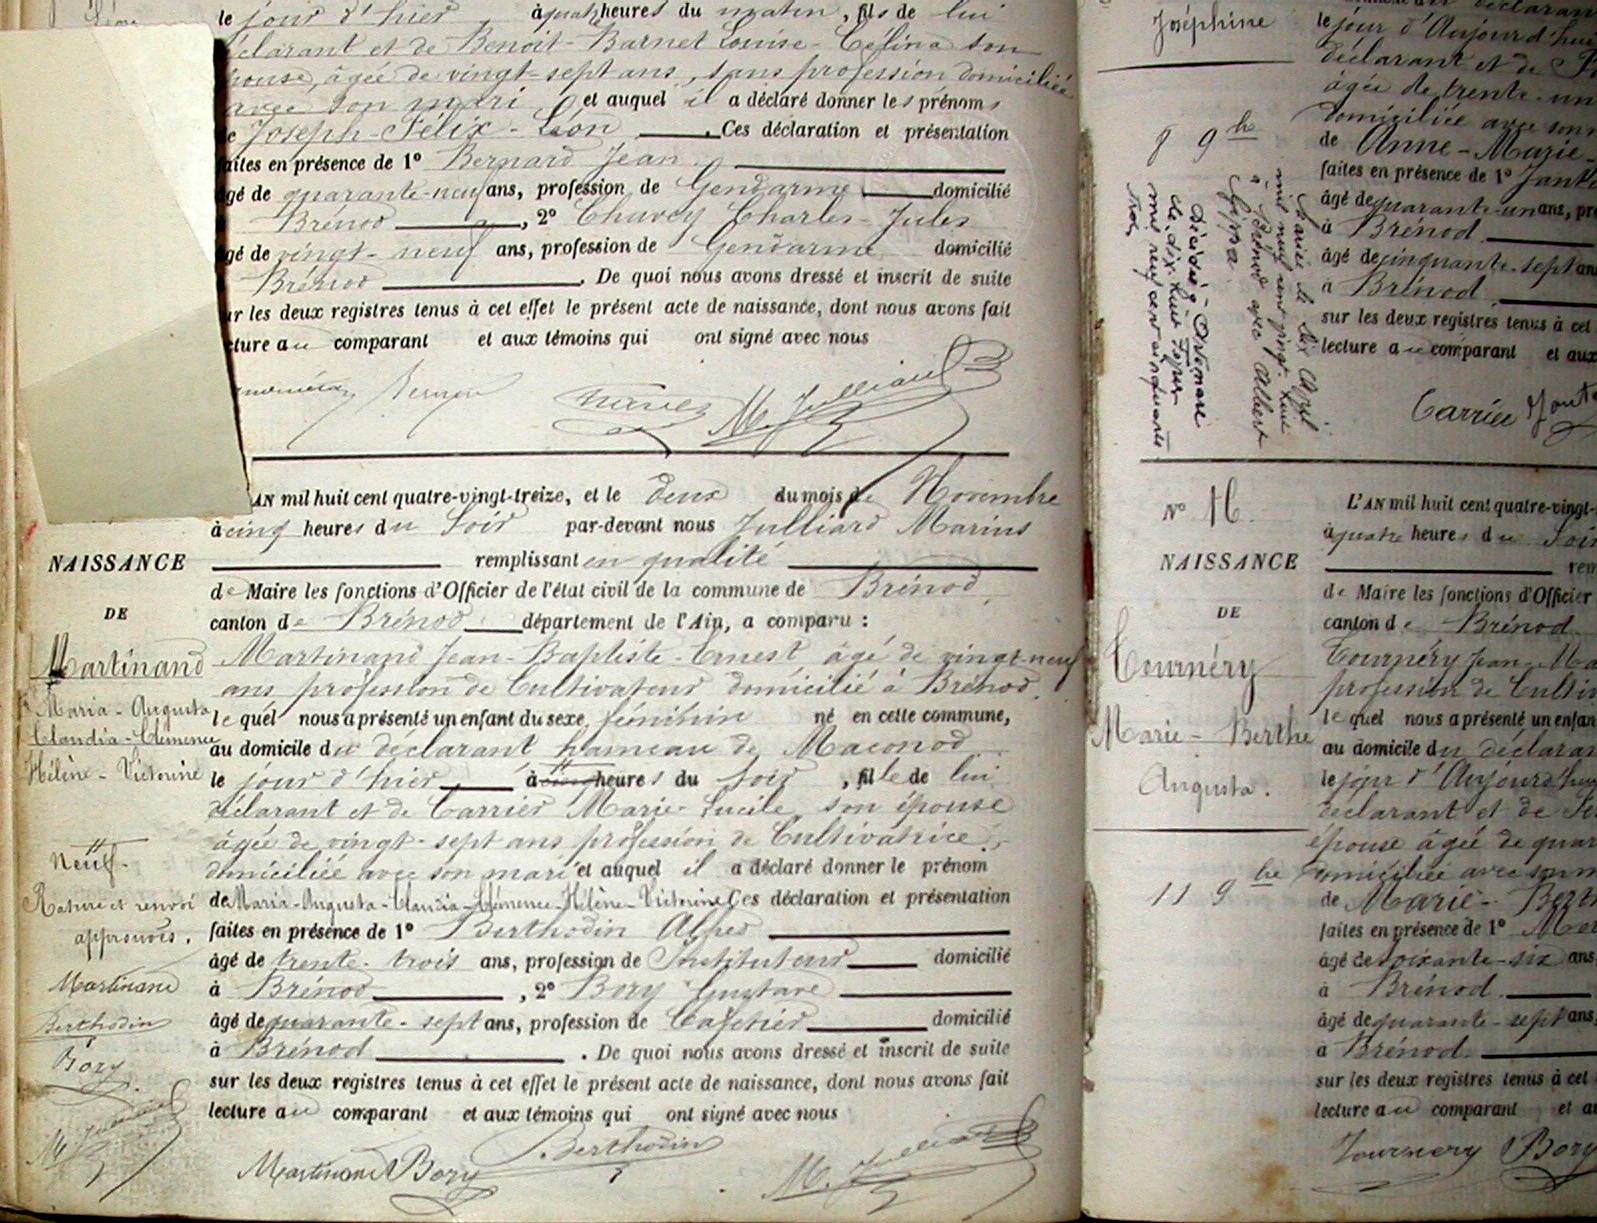 le jour d'hier à quatre heures du matin, fils de lui
déclarant et de Benoit-Barnet Louise-Célina son
épouse, âgée de vingt-sept ans, sans profession domiciliée
avec son mari, et auquel il a déclaré donner les prénoms
de Joseph-Félix-Léon Ces déclaration et présentation
faites en présence de 1º Bernard Jean
âgé de quarante-neuf ans, profession de Gendarme domicilié
Brénod, 2º Charles-Jules
âgé de vingt-neuf ans, profession de Gendarme domicilié
Brénod. De quoi nous avons dressé et inscrit de suite
sur les deux registres tenus à cet effet le présent acte de naissance, dont nous avons fait
lecture au comparant et aux témoins qui ont signé avec nous
M. Julliard
L'AN mil huit cent quatre-vingt-treize, et le deux du mois de Novembre
à cinq heures du Soir par-devant nous Julliard Marius
remplissant en qualité
de Maire les fonctions d'Officier de l'état civil de la commune de Brénod,
canton de Brénod département de l'Ain, a comparu :
Martinand Jean-Baptiste-Ernest, âgé de vingt-neuf
ans profession de Cultivateur domicilié à Brénod.
lequel nous a présenté un enfant du sexe féminin né en cette commune,
au domicile du déclarant hameau de Maconod
le jour d'hier à heures du soir, fille de lui
déclarant et de Carrier Marie-Lucile son épouse
âgée de vingt-sept ans profession de Cultivatrice,
domiciliée avec son mari et auquel il a déclaré donner le prénom
de Maria-Augusta-Claudia-Clémence-Hélène-Victorine Ces déclaration et présentation
faites en présence de 1º Berthodin Alfred
âgé de trente-trois ans, profession de Instituteur domicilié
à Brénod, 2º Bory Gustave
âgé de quarante-sept ans, profession de Cafetier domicilié
à Brénod. De quoi nous avons dressé et inscrit de suite
sur les deux registres tenus à cet effet le présent acte de naissance, dont nous avons fait
lecture au comparant et aux témoins qui ont signé avec nous
Martinand Bory Berthodin M. Julliard
NAISSANCE
DE
Martinand
Maria-Augusta
Claudia-Clémence
Hélène-Victorine
neuf.
Rature et renvoi
approuvés.
Martinand
Berthodin
Bory
M. Julliard
Joséphine
8 9bre
Mariée le dix Avril
mil neuf cent vingt huit
à Brénod avec Albert
Décédée à Oyonnax
le dix huit
mil neuf cent cinquante
trois
le jour d'Aujourd'hui
déclarant et de
âgée de trente-un
domiciliée avec son
de Anne-Marie-
faites en présence de 1º
âgé de quarante-un ans,
à Brénod
âgé de cinquante-sept ans
à Brénod
sur les deux registres tenus à cet
lecture au comparant et aux
Carrier
Nº 16.
NAISSANCE
DE
Tournéry
Marie-Berthe
Augusta.
11 9bre
L'AN mil huit cent quatre-vingt-
à quatre heures du Soir
de Maire les fonctions d'Officier
canton de Brénod
Tournéry Jean-
profession de
lequel nous a présenté un enfan
au domicile du déclarant
le jour d'Aujourd'hui
déclarant et de
épouse âgée de
domiciliée avec son
de Marie-
faites en présence de 1º
âgé de soixante-six ans
à Brénod
âgé de quarante-sept ans,
à Brénod
sur les deux registres tenus à cet
lecture au comparant et
Tournery Bory